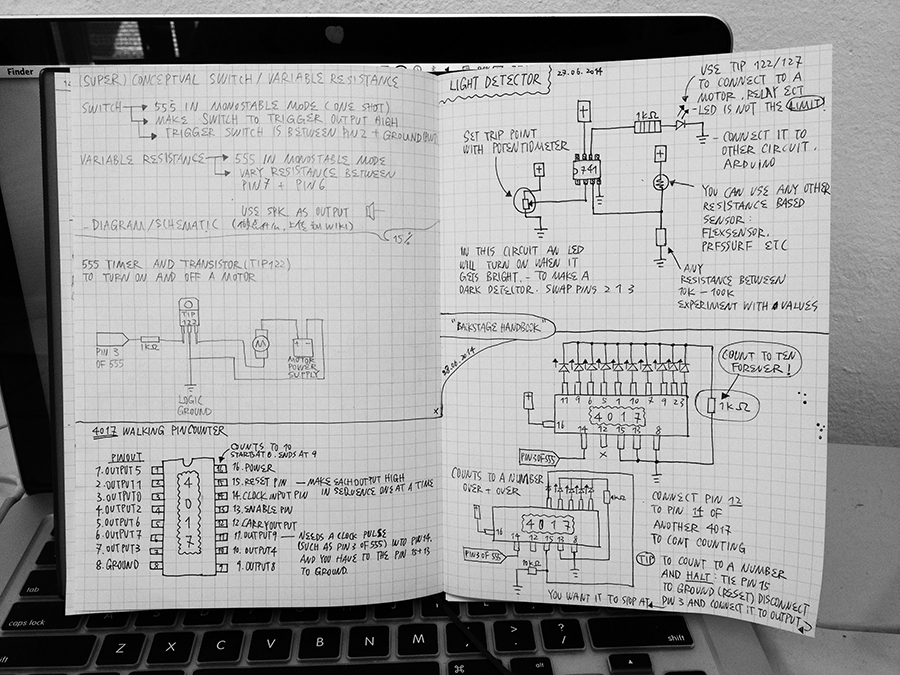 Finder
(SUPER) CONCEPTUAL SWITCH / VARIABLE RESISTANCE
SWITCH → 555 IN MONOSTABLE MODE (ONE SHOT)
→ MAKE SWITCH TO TRIGGER OUTPUT HIGH
→ TRIGGER SWITCH IS BETWEEN PIN 2 + GROUND
VARIABLE RESISTANCE → 555 IN MONOSTABLE MODE
→ VARY RESISTANCE BETWEEN
PIN 7 + PIN 6
USE SPK AS OUTPUT
- DIAGRAM/SCHEMATIC
15%
555 TIMER AND TRANSISTOR (TIP122)
TO TURN ON AND OFF A MOTOR
TIP
122
PIN 3
OF 555
1KΩ
M
+ -
MOTOR
POWER
SUPPLY
LOGIC
GROUND
x
4017 WALKING PIN COUNTER
COUNTS TO 10
START AT 0. ENDS AT 9
PINOUT
1. OUTPUT 5
2. OUTPUT 1
3. OUTPUT 0
4. OUTPUT 2
5. OUTPUT 6
6. OUTPUT 7
7. OUTPUT 3
8. GROUND
4017
16. POWER
15. RESET PIN — MAKE EACH OUTPUT HIGH
14. CLOCK INPUT PIN IN SEQUENCE ONE AT A TIME
13. ENABLE PIN
12. CARRY OUTPUT
11. OUTPUT 9 — NEEDS A CLOCK PULSE
10. OUTPUT 4 (SUCH AS PIN 3 OF 555) INTO PIN 14.
9. OUTPUT 8 AND YOU HAVE TO THE PIN 15+13
TO GROUND.
LIGHT DETECTOR 27.06.2014
USE TIP 122/127
TO CONNECT TO A
MOTOR, RELAY ECT
- LED IS NOT THE LIMIT!
- CONNECT IT TO
OTHER CIRCUIT.
ARDUINO
+
1KΩ
SET TRIP POINT
WITH POTENTIOMETER
+
741
+
YOU CAN USE ANY OTHER
RESISTANCE BASED
SENSOR:
FLEXSENSOR,
PRESSURE ETC
IN THIS CIRCUIT AN LED
WILL TURN ON WHEN IT
GETS BRIGHT. - TO MAKE A
DARK DETECTOR. SWAP PINS 2 & 3
ANY
RESISTANCE BETWEEN
10K - 100K
EXPERIMENT WITH VALUES
"BACKSTAGE HANDBOOK"
28.06.2014
COUNT TO TEN
FOREVER!
1KΩ
11 9 6 5 1 10 7 9 23
+
4017
16
14 12 15 13 8
x
PIN 3 OF 555
COUNTS TO A NUMBER
OVER + OVER
4017
16
14 12 15 13 8
PIN 3 OF 555
10KΩ
CONNECT PIN 12
TO PIN 14 OF
ANOTHER 4017
TO CONT COUNTING
TIP TO COUNT TO A NUMBER
AND HALT: TIE PIN 15
TO GROUND (RESET) DISCONNECT
PIN 3 AND CONNECT IT TO OUTPUT
YOU WANT IT TO STOP AT
tab
caps lock
shift
Z X C V B N M
< ,
> .
? /
shift
⌘
alt